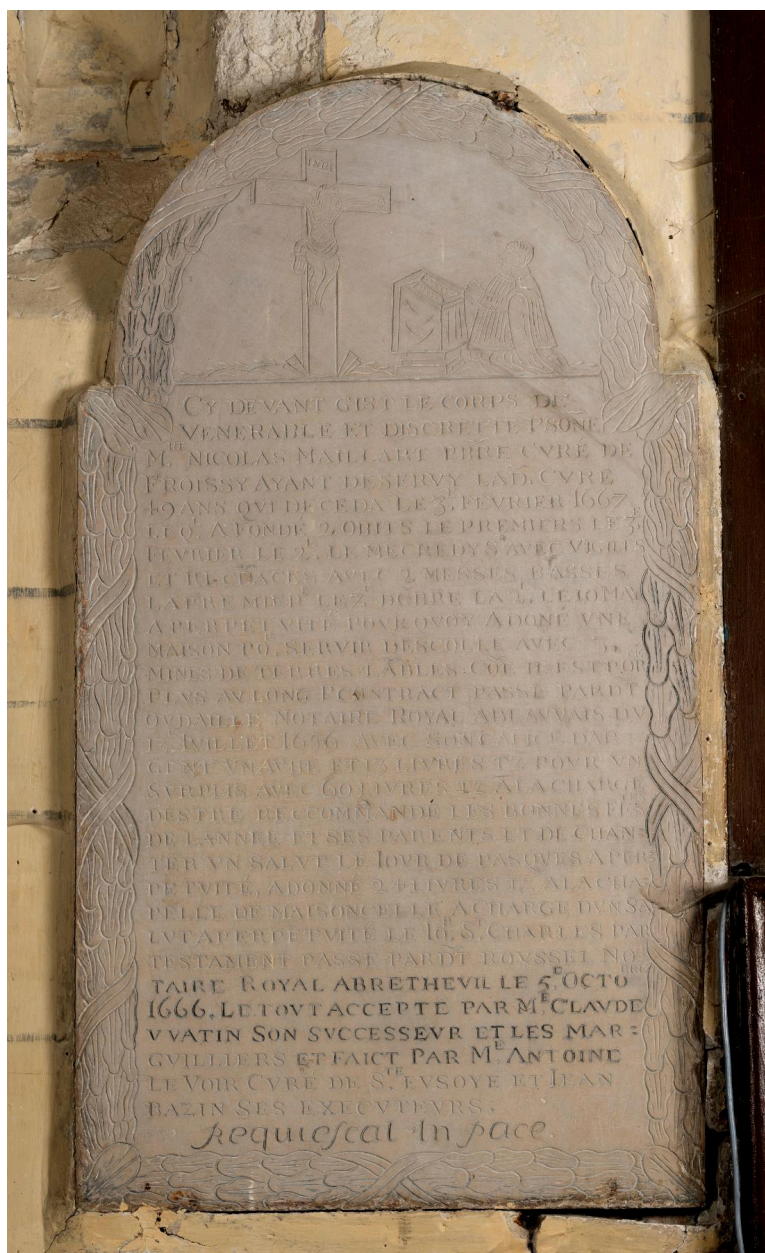 INRI
CY DEVANT GIST LE CORPS DE
VENERABLE ET DISCRETTE PSONE
M.RE NICOLAS MAILLART PBRE CVRE DE
FROISSY AYANT DESERVY LAD. CVRE
49 ANS QVI DECEDA LE 3.E FEVRIER 1667
LEQ.L A FONDÉ 2. OBITS LE PREMIERS LE 3.E
FEVRIER LE 2.E LE MECREDY S.T AVEC VIGILES
ET AVEC 2 MESSES BASSES
LA LE LA 2.E LE 10 MAY
A PERPETVITÉ POVR QVOY A DONÉ VNE
MAISON PO.R SERVIR DESCOLLE AVEC
MINES DE TERRES LABLES. COE IL EST POR
PLVS AV LONG P CONTRACT PASSÉ PARDT
OVDAILLE NOTAIRE ROYAL ABEAVVAIS DV
IVILLET 1656 AVEC SON CALICE DAR
GENT VN AVBE ET 13 LIVRES TZ POVR VN
SVRPLIS AVEC 60 LIVRES TZ ALACHARGE
DESTRE RECCOMMANDÉ LES BONNES FES
DE LANNÉE ET SES PARENTS ET DE CHAN=
TER VN SALVT LE IOVR DE PASQVES APER=
PETVITÉ, ADONNÉ 24 LIVRES TZ ALACHA=
PELLE DE MAISONCELLE ACHARGE DVN SA
LVT APERPETVITÉ LE S.T CHARLES PAR
TESTAMENT PASSÉ PARDT ROVSSEL NO
TAIRE ROYAL ABRETHEVIL LE 5.E OCTOBRE
1666. LE TOVT ACCEPTÉ PAR M.E CLAVDE
VVATIN SON SVCCESSEVR ET LES MAR=
GVILLIERS ET FAICT PAR M.E ANTOINE
LE VOIR CVRE DE S.TE EVSOYE ET IEAN
BAZIN SES EXECVTEVRS.
Requiescat In pace